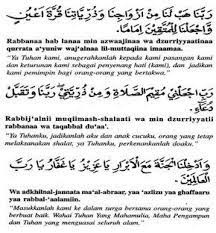 رَبَّنَا هَبْ لَنَا مِنْ أَزْوَاجِنَا وَذُرِّيَّاتِنَا قُرَّةَ أَعْيُنٍ
وَاجْعَلْنَا لِلْمُتَّقِينَ إِمَامًا.
Rabbanaa hab lanaa min azwaajinaa wa dzurriyyaatinaa
qurrata a'yuniw waj'alnaa lil-muttaqiina imaamaa.
"Ya Tuhan kami, anugerahkanlah kepada kami pasangan kami
dan keturunan kami sebagai penyenang hati (kami), dan jadikan
kami pemimpin bagi orang-orang yang bertakwa."
رَبِّ اجْعَلْنِي مُقِيمَ الصَّلَاةِ وَمِنْ ذُرِّيَّتِي رَبَّنَا وَتَقَبَّلْ
دُعَاءِ.
Rabbij'alnii muqiimash-shalaati wa min dzurriyyatii
rabbanaa wa taqabbal du'aa'.
"Ya Tuhanku, jadikanlah aku dan anak cucuku, orang yang tetap
melaksanakan shalat, ya Tuhanku, perkenankanlah doaku."
وَأَدْخِلْنَا الْجَنَّةَ مَعَ الْأَبْرَارِ يَا عَزِيزُ يَا غَفَّارُ يَا رَبَّ
الْعَالَمِينَ.
Wa adkhilnal-jannata ma'al-abraar, yaa 'aziizu yaa ghaffaaru
yaa rabbal-'aalamiin.
"Masukkanlah kami ke dalam surga bersama orang-orang yang
berbuat baik. Wahai Tuhan Yang Mahamulia, Maha Pengampun
dan Yang menguasai seluruh alam."